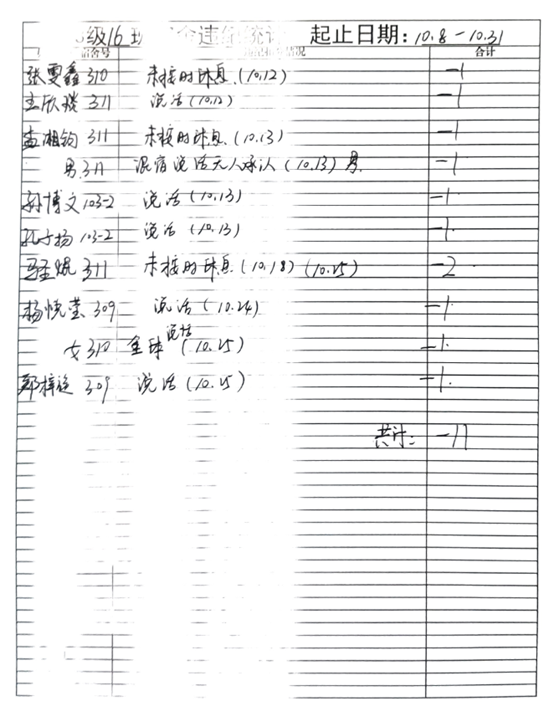 级16 违纪统计 起止日期：10.8-10.31
宿舍号 情况 合计
张雯鑫 310 未按时休息（10.12） -1
王欣琰 311 说话（10.12） -1
孟湘钧 311 未按时休息（10.13） -1
男311 混宿说话无人承认（10.13） -1
孙博文 103-2 说话（10.13） -1
孔子扬 103-2 说话（10.13） -1
焜 311 未按时休息（10.18）（10.25） -2
杨悦莹 309 说话（10.24） -1
女310 全体说话（10.25） -1
郑梓 309 说话（10.25） -1
共计： -11